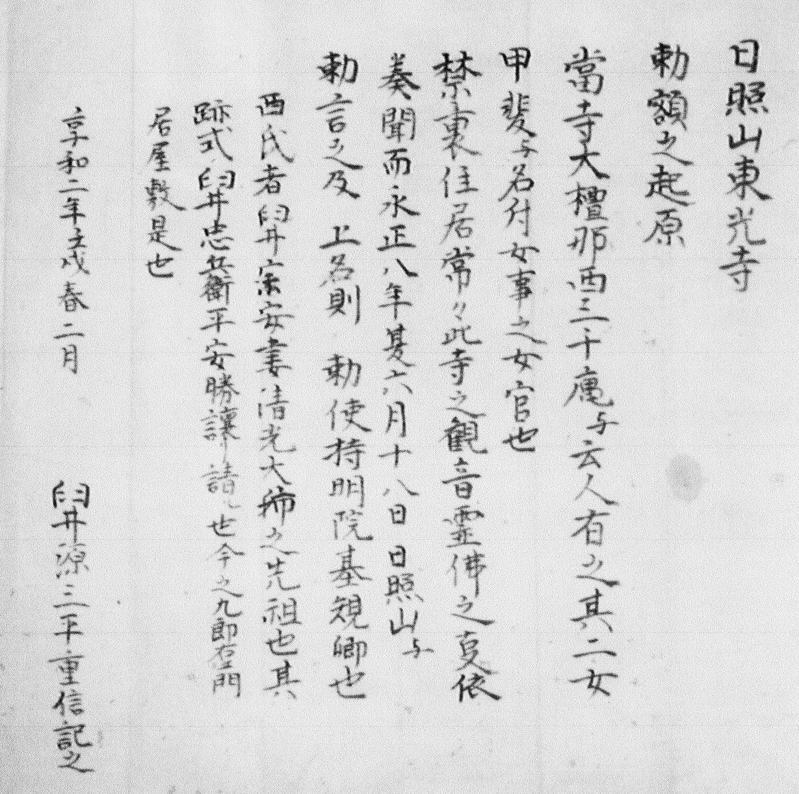 日照山東光寺
勅額之起原
當寺大檀那西三十麿与云人有之其二女
甲斐与名付女事之女官也
禁裏住居常々此寺之観音霊佛之㕝依
奏聞而永正八年夏六月十八日日照山与
勅言之及 上名則 勅使持明院基規卿也
西氏者臼井宗安妻清光大姉之先祖也其
跡式臼井忠兵衛平安勝譲請也今之九郎右衛門
居屋敷是也
享和二年壬戌春二月
臼井源三平重信記之